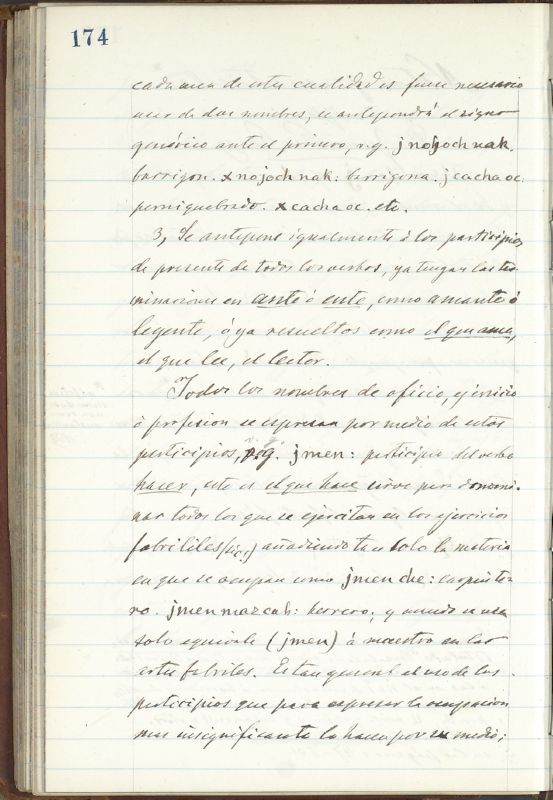 174
cada una de estas cualidades fuere necesario
usar de dos nombres, se antepondrá el signo
genérico ante el primero, v.g. j nojoch nak.
barrigon. x nojoch nak: barrigona. j cacha oc:
perniquebrado. x cacha oc. etc.
3, Se antepone igualmente á los participios
de presente de todos los verbos, ya tengan las ter
minaciones en ante ó ente, como amante ó
legente, ó ya resueltos como el que ama,
el que lee, el lector.
Todos los nombres de oficio, ejercicio
ó profesion se espresan por medio de estos
participios, v.g. jmen: participio del verbo
hacer, esto es el que hace sirve para denomi
nar todos los que se ejercitan en los ejercicios
fabrililes (sic.) añadiendo tan solo la materia
en que se ocupan como jmen che: carpinte-
ro. jmen mazcab: herrero; y cuando se usa
solo equivale (jmen) á maestro en las
artes fabriles. Es tan general el uso de los
participios que para espresar la ocupacion
mas insignificante lo hacen por su medio;